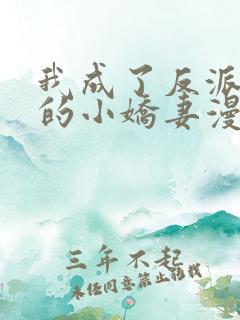 我成了反派
的小娇妻漫
三年不起
未经同意禁止转载